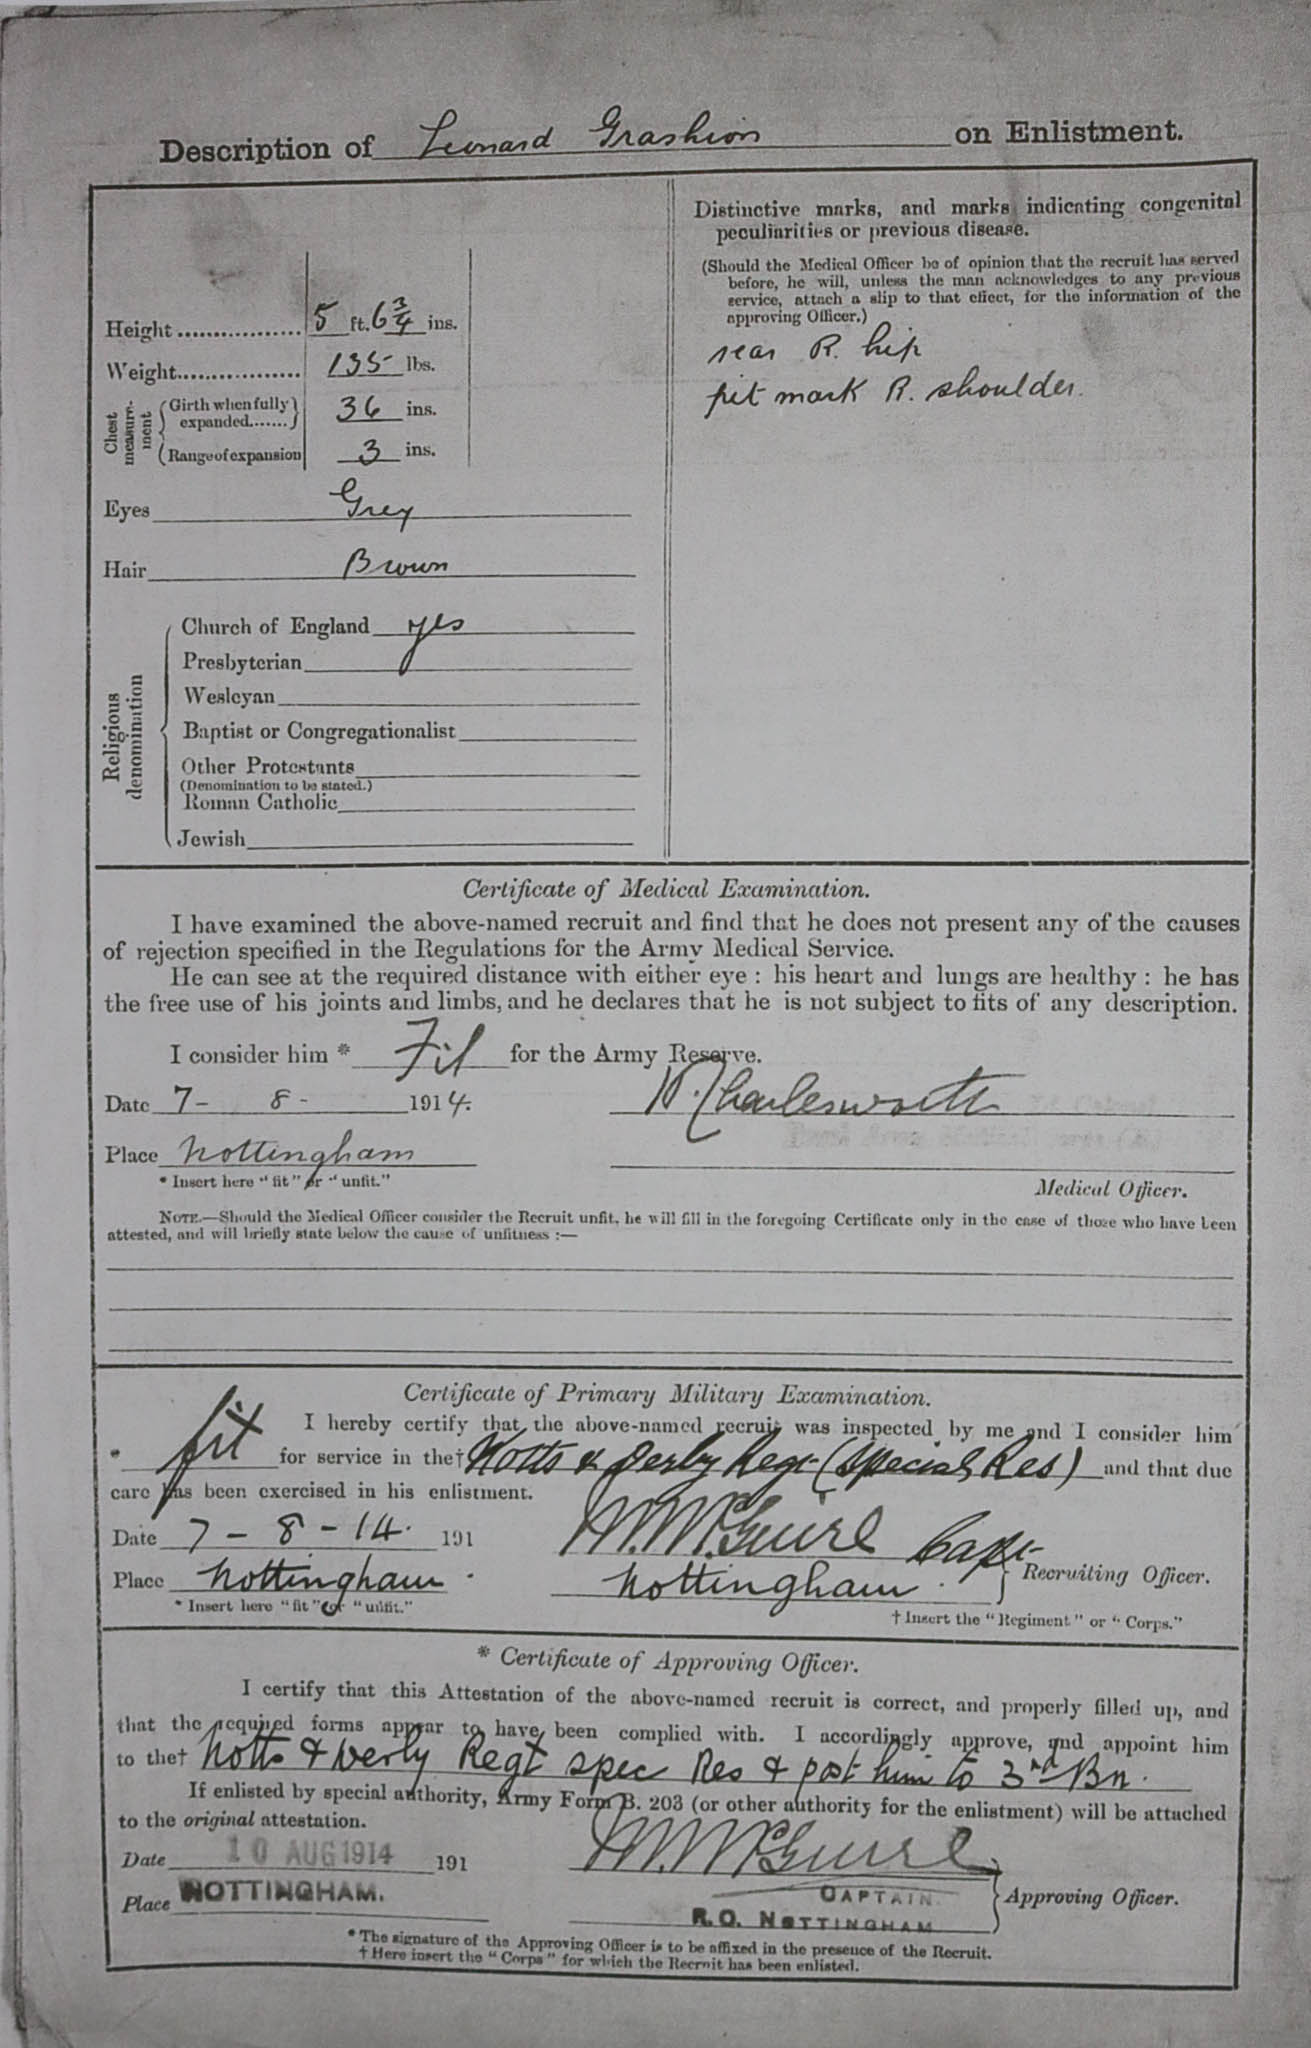 Description of Leonard Grashion on Enlistment.
Height 5 ft. 6 3/4 ins.
Weight 135 lbs.
Chest measure-ment
Girth when fully expanded 36 ins.
Range of expansion 3 ins.
Eyes Grey
Hair Brown
Religious denomination
Church of England yes
Presbyterian
Wesleyan
Baptist or Congregationalist
Other Protestants
(Denomination to be stated.)
Roman Catholic
Jewish
Distinctive marks, and marks indicating congenital
peculiarities or previous disease.
(Should the Medical Officer be of opinion that the recruit has served
before, he will, unless the man acknowledges to any previous
service, attach a slip to that effect, for the information of the
approving Officer.)
scar R. hip
pit mark R. shoulder.
Certificate of Medical Examination.
I have examined the above-named recruit and find that he does not present any of the causes
of rejection specified in the Regulations for the Army Medical Service.
He can see at the required distance with either eye : his heart and lungs are healthy : he has
the free use of his joints and limbs, and he declares that he is not subject to fits of any description.
I consider him * Fit for the Army Reserve.
Date 7 - 8 - 1914. Charlesworth
Place Nottingham
* Insert here "fit" or "unfit."
Medical Officer.
NOTE.—Should the Medical Officer consider the Recruit unfit, he will fill in the foregoing Certificate only in the case of those who have been
attested, and will briefly state below the cause of unfitness :—
Certificate of Primary Military Examination.
I hereby certify that the above-named recruit was inspected by me and I consider him
* fit for service in the† Notts & Derby Regt (Special Res) and that due
care has been exercised in his enlistment.
Date 7 - 8 - 14. 191 M. McGuire Capt
Place Nottingham. Nottingham. Recruiting Officer.
* Insert here "fit" or "unfit." † Insert the "Regiment" or "Corps."
* Certificate of Approving Officer.
I certify that this Attestation of the above-named recruit is correct, and properly filled up, and
that the required forms appear to have been complied with. I accordingly approve, and appoint him
to the† Notts & Derby Regt spec Res & post him to 3rd Bn.
If enlisted by special authority, Army Form B. 203 (or other authority for the enlistment) will be attached
to the original attestation.
Date 10 AUG 1914 191 M. McGuire
Place NOTTINGHAM. CAPTAIN. Approving Officer.
R.O. NOTTINGHAM
* The signature of the Approving Officer is to be affixed in the presence of the Recruit.
† Here insert the "Corps" for which the Recruit has been enlisted.